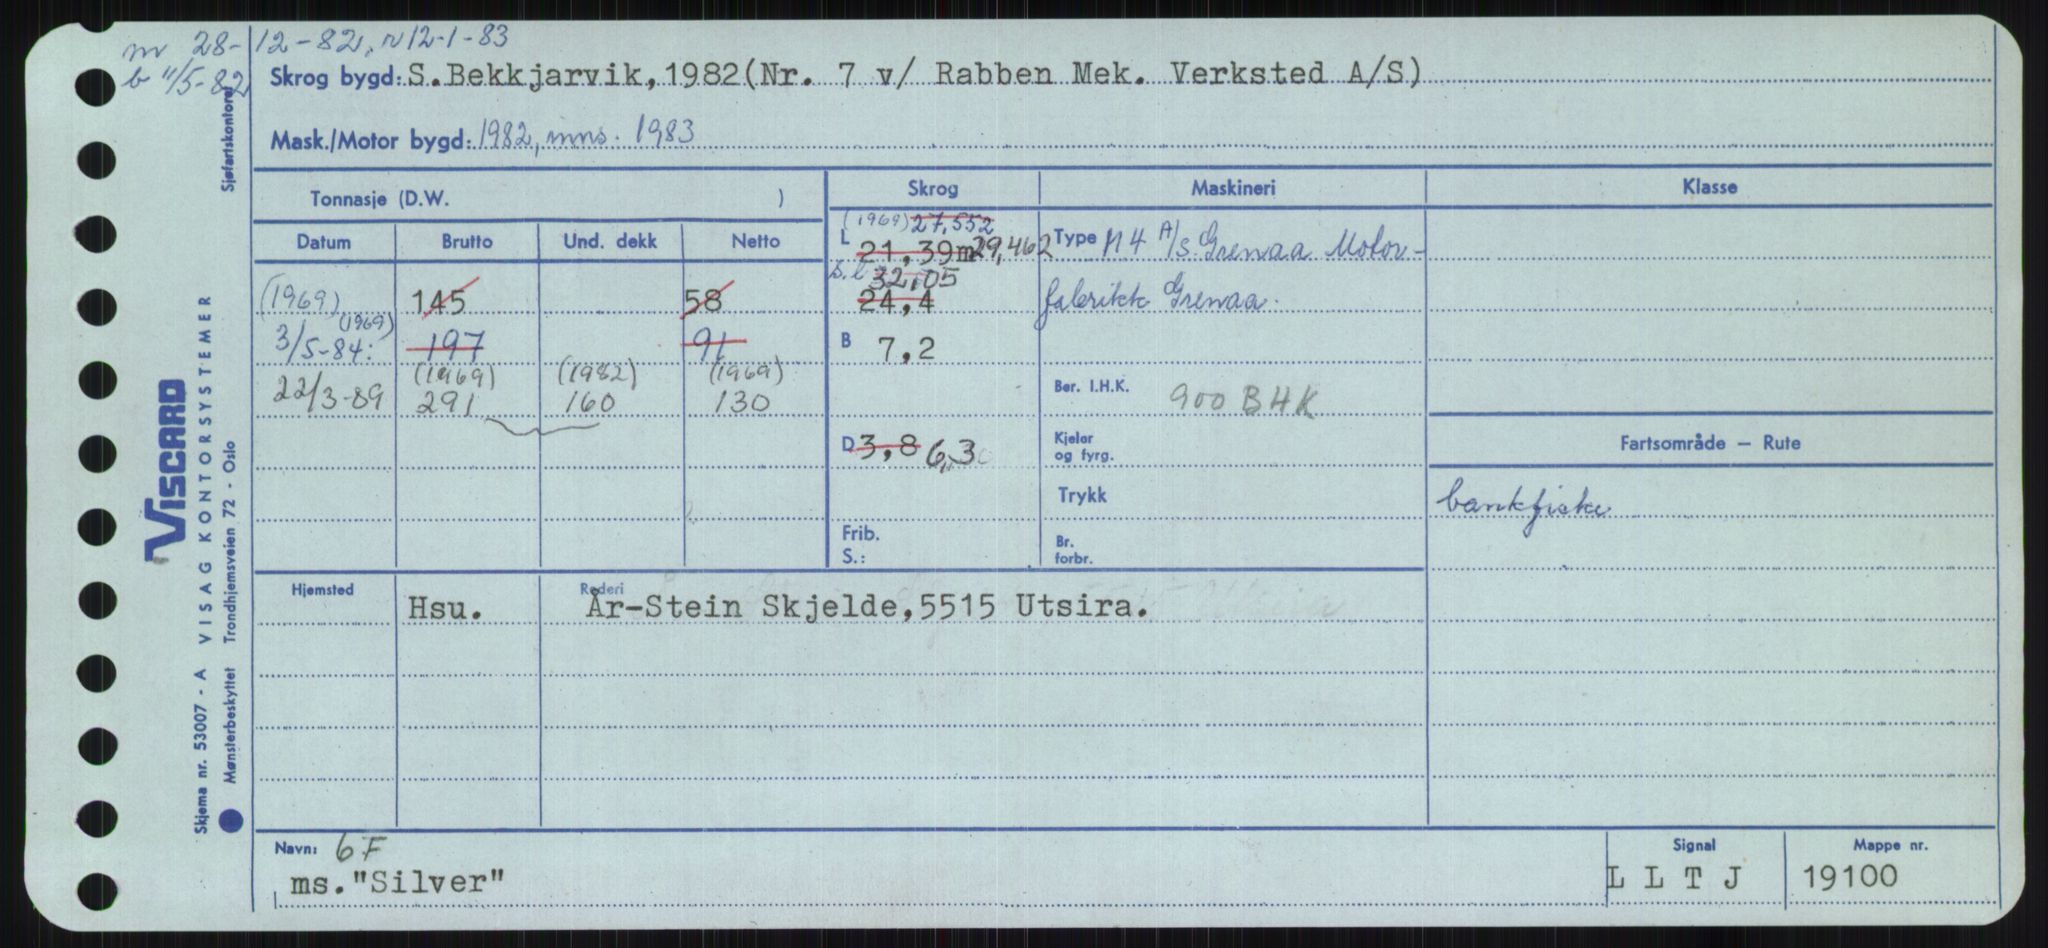 m 28-12-82, r 12-1-83
b 11/5-82
Skrog bygd: S.Bekkjarvik, 1982(Nr. 7 v/ Rabben Mek. Verksted A/S)
Mask./Motor bygd: 1982, mns. 1983
Sjøfartskontoret
Tonnasje (D.W. )
Skrog
Maskineri
Klasse
Datum Brutto Und. dekk Netto
(1969) 145 58
3/5-84: (1969) 197 91
(1969) (1982) (1969)
22/3-89 291 160 130
(1969) 27,552
L 21,39m 29,462
s.l 32,05
24,4
B 7,2
D 3,8 6,3
Frib.
S.:
Type M4 A/S Grenaa Motor-
fabrikk Grenaa.
Ber. I.H.K. 900 BHK
Kjeler
og fyrg.
Trykk
Br.
forbr.
Fartsområde — Rute
bankfiske
Hjemsted
Hsu.
Rederi
År-Stein Skjelde, 5515 Utsira.
Navn: 6F
ms."Silver"
Signal
L L T J
Mappe nr.
19100
VISCARD
Skjema nr. 53007 - A VISAG KONTORSYSTEMER
Mønsterbeskyttet Trondhjemsveien 72 - Oslo